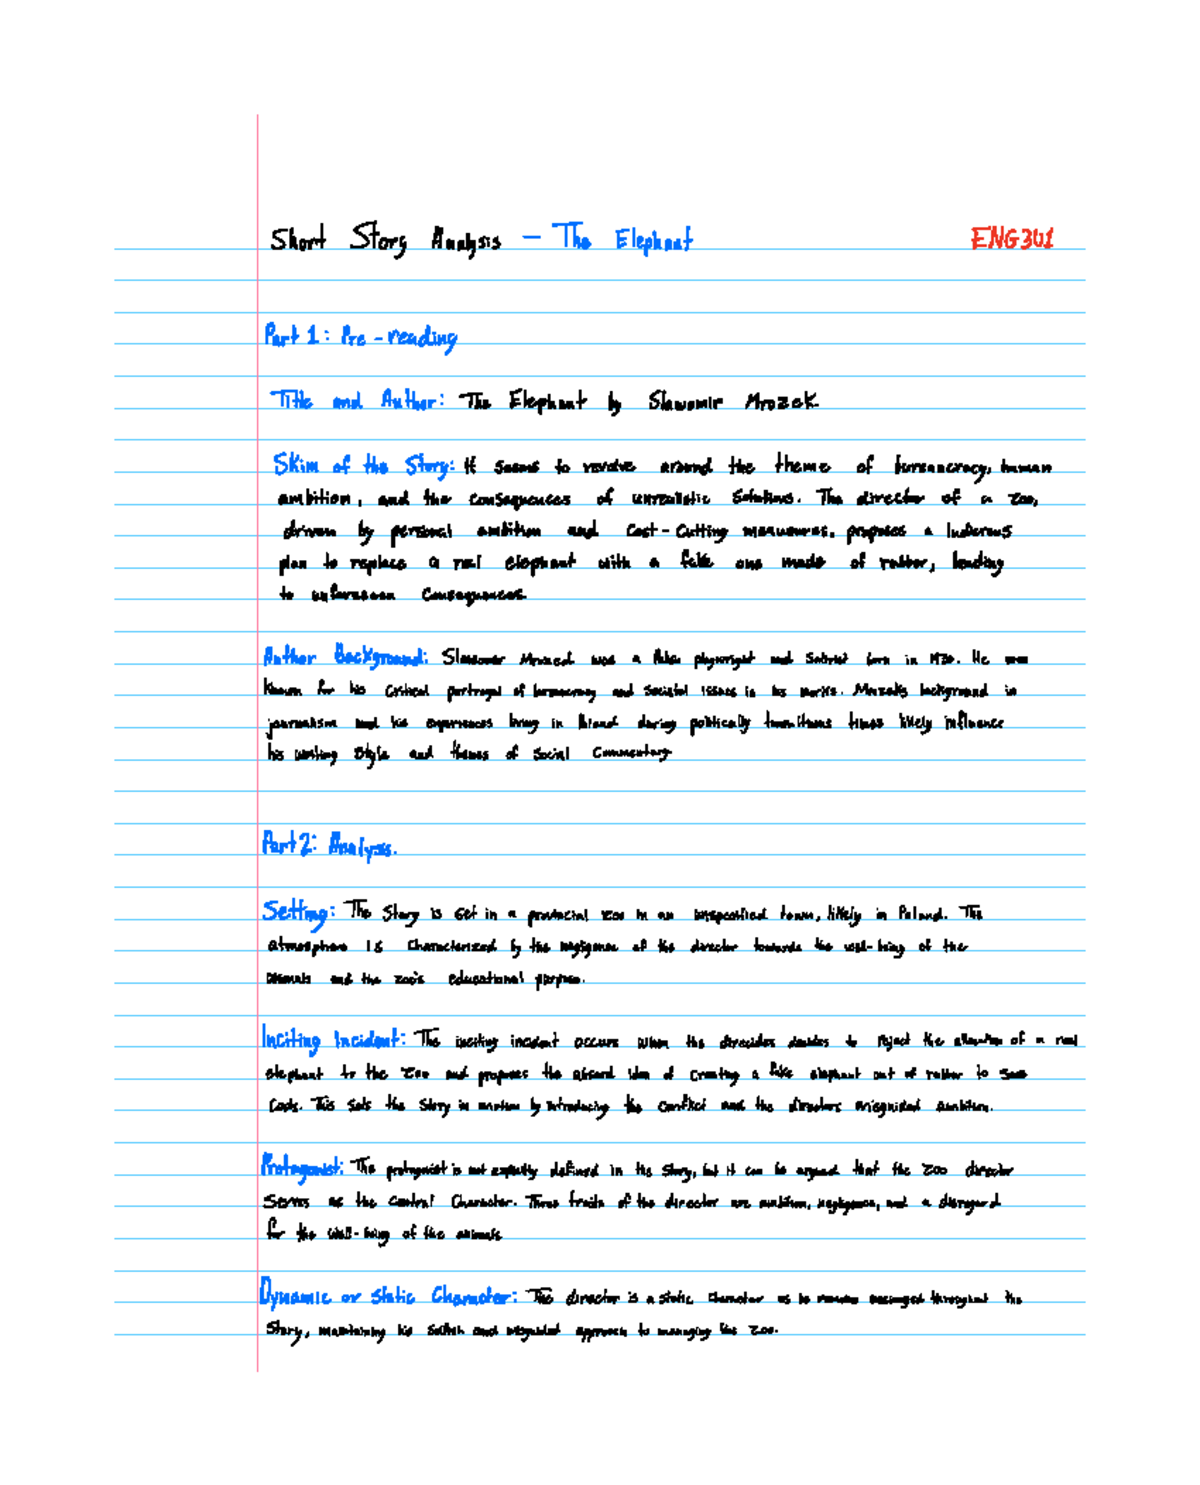 Short Story Analysis – The Elephant ENG3U1
Part 1: Pre-reading
Title and Author: The Elephant by Slawomir Mrozek
Skim of the Story: It seems to revolve around the theme of bureaucracy, human
ambition, and the consequences of unrealistic solutions. The director of a zoo,
driven by personal ambition and cost-cutting proposes a
plan to replace a real elephant with a fake one made of rubber, leading
to unforeseen consequences.
Author Background: Slawomir Mrozek was a playwright and satirist born in 1930. He was
known for his critical portrayal of bureaucracy and societal issues in his works. Mrozek's background in
journalism and his experiences living in Poland during politically times likely influence
his writing style and themes of social commentary
Part 2: Analysis.
Setting: The story is set in a provincial zoo in an unspecified town, likely in Poland. The
atmosphere is characterized by the negligence of the director towards the well-being of the
animals and the zoo's educational purpose.
Inciting Incident: The inciting incident occurs when the decides to reject the of a real
elephant to the zoo and proposes the absurd idea of creating a fake elephant out of rubber to save
costs. This sets the story in motion by introducing the conflict and the directors misguided ambition.
Protagonist: The protagonist is not explicitly defined in the story, but it can be argued that the zoo director
serves as the central character. Three traits of the director are ambition, negligence, and a disregard
for the well-being of the animals
Dynamic or Static Character: The director is a static character as he remains unchanged throughout the
story, maintaining his selfish and misguided approach to managing the zoo.